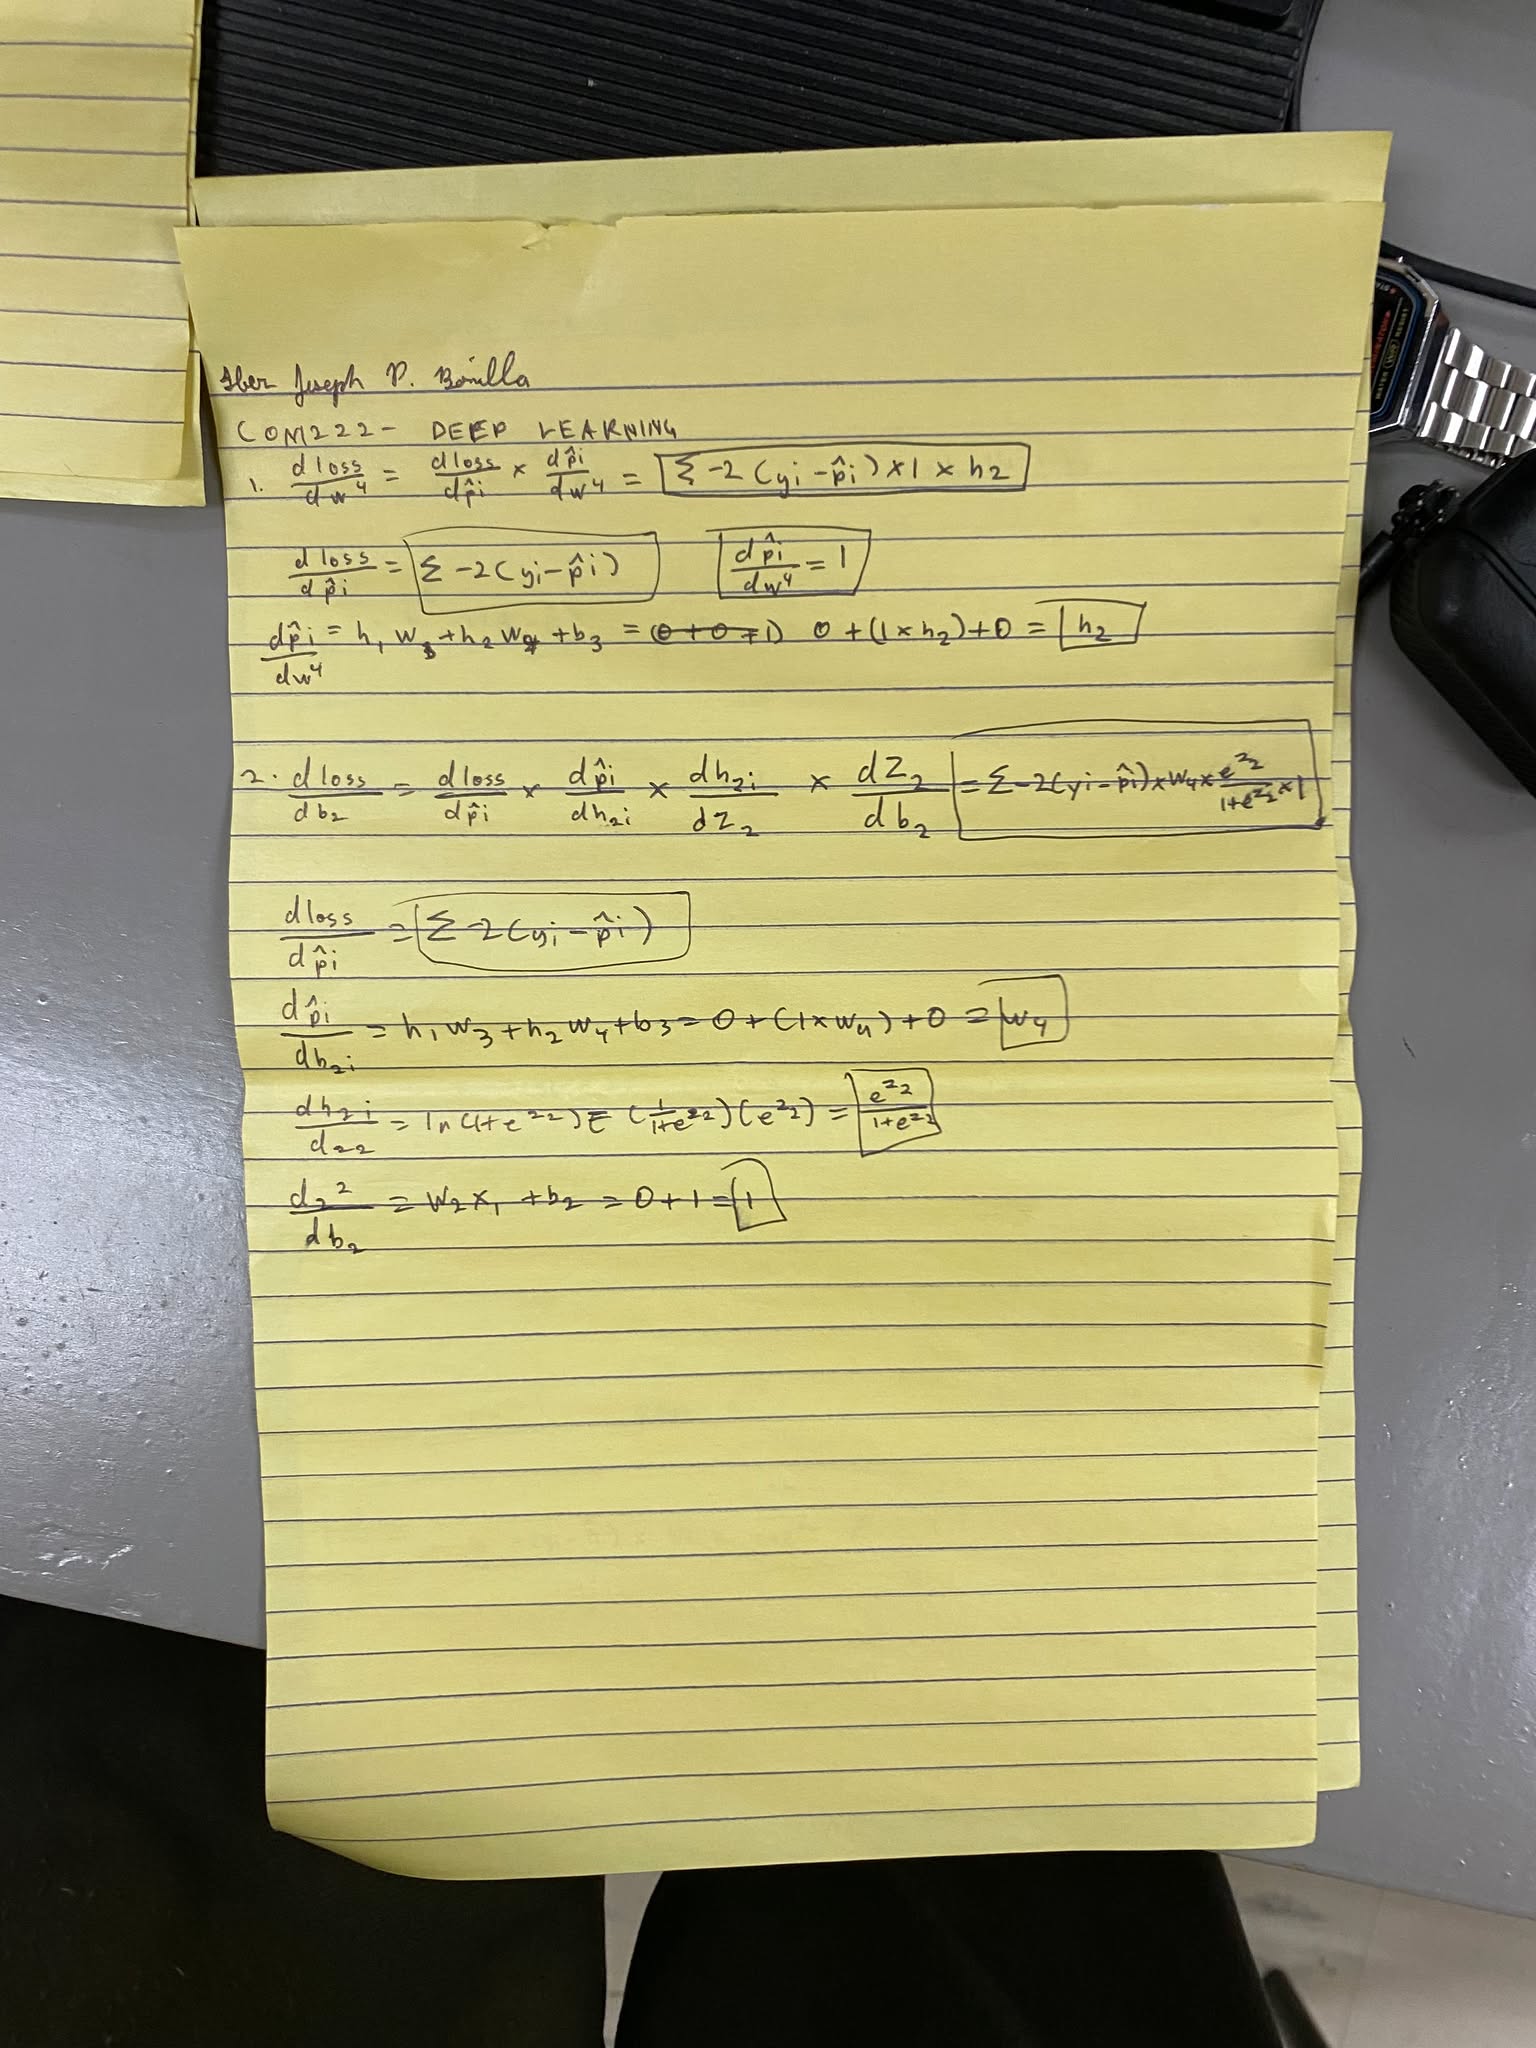 Joseph P. Bonilla
COM222- DEEP LEARNING
1. dloss/dw4 = dloss/dp̂i × dp̂i/dw4 = Σ -2(yi - p̂i) × 1 × h2
dloss/dp̂i = Σ -2(yi - p̂i) dp̂i/dw4 = 1
dp̂i/dw4 = h1 w3 + h2 w4 + b3 = (0 + 0 + 1) 0 + (1 × h2) + 0 = h2
2. dloss/db2 = dloss/dp̂i × dp̂i/dh2i × dh2i/dZ2 × dZ2/db2 = Σ -2(yi - p̂i) × w4 × e^z2/1+e^z2 × 1
dloss/dp̂i = Σ -2(yi - p̂i)
dp̂i/dh2i = h1 w3 + h2 w4 + b3 = 0 + (1 × w4) + 0 = w4
dh2i/dz2 = ln(1+e^z2) = (1/1+e^z2)(e^z2) = e^z2/1+e^z2
dz2/db2 = w2 x1 + b2 = 0 + 1 = 1